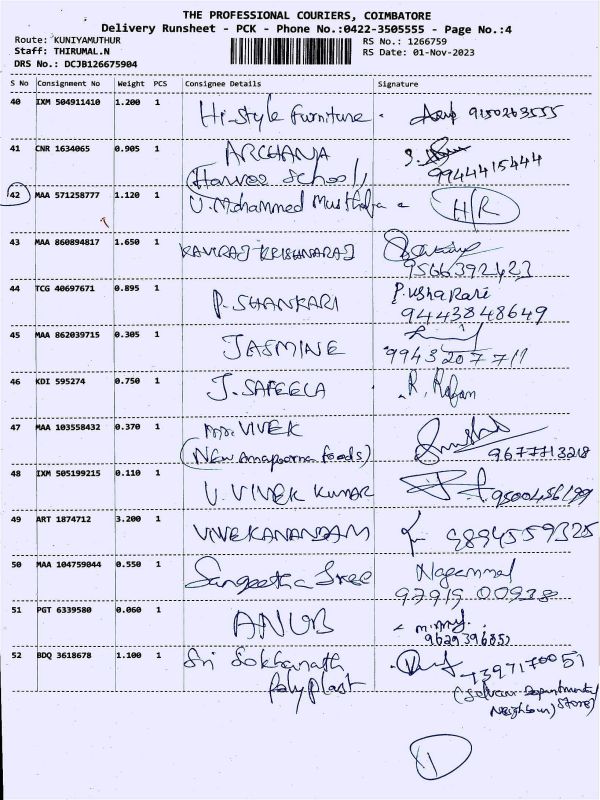 THE PROFESSIONAL COURIERS, COIMBATORE
Delivery Runsheet - PCK - Phone No.:0422-3505555 - Page No.:4
Route: KUNIYAMUTHUR
RS No.: 1266759
Staff: THIRUMAL.N
RS Date: 01-Nov-2023
DRS No.: DCJB126675904
S No Consignment No Weight PCS Consignee Details Signature
40 IXM 504911410 1.200 1 Hi-style furniture 9150263555
41 CNR 1634065 0.905 1 ARCHANA
School) 9944415444
42 MAA 571258777 1.120 1 U.Mohammed Musthafa H/R
43 MAA 860894817 1.650 1 KAVIRAJ KRISHNARAJ
9566392423
44 TCG 40697671 0.895 1 P. SHANKARI P.Usha Rani
9443848649
45 MAA 862039715 0.305 1 JASMINE
9943207711
46 KDI 595274 0.750 1 J. SAFEELA R.
47 MAA 103558432 0.370 1 Mr. VIVEK
(New Annapoorna foods) 9677713218
48 IXM 505199215 0.110 1 V. VIVEK KUMAR 9500456199
49 ART 1874712 3.200 1 VIVEKANANDAM 9894559325
50 MAA 104759044 0.550 1 Sangeetha Sree Nagammal
97919 00938
51 PGT 6339580 0.060 1 ANUB
9629396852
52 BDQ 3618678 1.100 1 Sri Sokkanath
Polyplast 7397170051
(Selvam Departmental
Neighbour) Store)